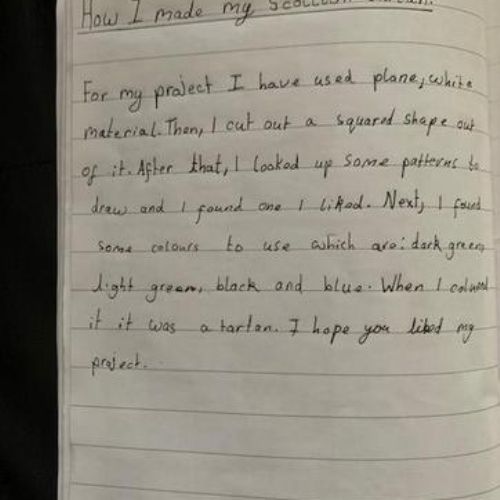 How I made my Scottish tartan.
For my project I have used plane, white
material. Then, I cut out a squared shape out
of it. After that, I looked up some patterns to
draw and I found one I liked. Next, I found
some colours to use which are: dark green,
light green, black and blue. When I coloured
it it was a tartan. I hope you liked my
project.